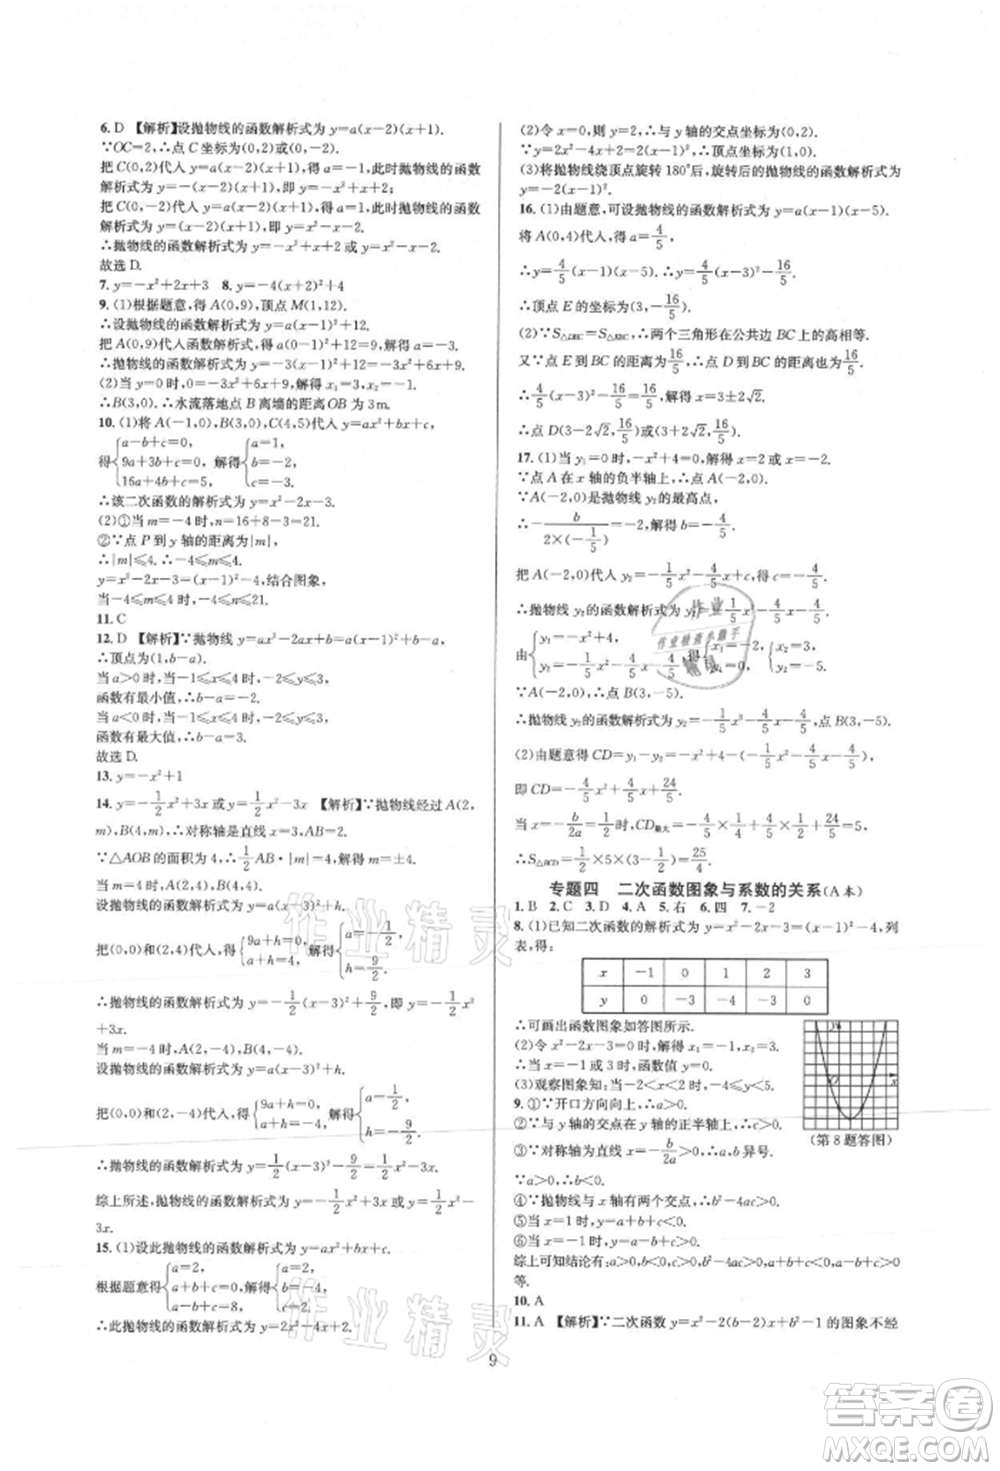 6. D 【解析】设抛物线的函数解析式为 y=a(x-2)(x+1).
∵OC=2,∴点 C 的坐标为(0,2)或(0,-2).
把 C(0,2)代入 y=a(x-2)(x+1),得 a=-1,此时抛物线的函数
解析式为 y=-(x-2)(x+1),即 y=-x²+x+2;
把 C(0,-2)代入 y=a(x-2)(x+1),得 a=1,此时抛物线的函数
解析式为 y=(x-2)(x+1),即 y=x²-x-2.
∴抛物线的函数解析式为 y=-x²+x+2 或 y=x²-x-2.
故选 D.
7. y=-x²+2x+3 8. y=-2x²+4
9. (1)根据题意,得 A(0,9),顶点 M(1,12).
∴设抛物线的函数解析式为 y=a(x-1)²+12.
把 A(0,9)代入函数解析式,得 a=-3.
∴抛物线的函数解析式为 y=-3(x-1)²+12=-3x²+6x+9.
(2)当 y=0 时,0=-3x²+6x+9,解得 x₁=3,x₂=-1.
∴B(3,0).∴水流落地点 B 离墙的距离 OB 为 3 m.
10. (1)将 A(-1,0),B(3,0),C(4,5)代入 y=ax²+bx+c,
得{a-b+c=0, 9a+3b+c=0, 16a+4b+c=5, 解得{a=1, b=-2, c=-3.
∴该二次函数的解析式为 y=x²-2x-3.
(2)①当 m=-4 时,n=16+8-3=21.
②∵点 P 到 y 轴的距离为|m|,
∴|m|≤4.∴-4≤m≤4.
y=x²-2x-3=(x-1)²-4,结合图象,
当-4≤m≤4 时,-4≤n≤21.
11. C
12. D 【解析】∵抛物线 y=ax²-2ax+b=a(x-1)²+b-a,
∴顶点为(1,b-a).
当 a>0 时,当-1≤x≤4 时,-2≤y≤3,
函数有最小值,∴b-a=-2.
当 a<0 时,当-1≤x≤4 时,-2≤y≤3,
函数有最大值,∴b-a=3.
故选 D.
13. y=-x²+1
14. y=-1/2x²+3x 或 y=1/2x²-3x 【解析】∵抛物线经过 A(2,
m),B(4,m),∴对称轴是直线 x=3,AB=2.
∵△AOB 的面积为 4,∴1/2AB·|m|=4,解得 m=±4.
当 m=4 时,A(2,4),B(4,4).
设抛物线的函数解析式为 y=a(x-3)²+h.
把(0,0)和(2,4)代入,得{9a+h=0, a+h=4, 解得{a=-1/2, h=9/2.
∴抛物线的函数解析式为 y=-1/2(x-3)²+9/2,即 y=-1/2x²+
3x.
当 m=-4 时,A(2,-4),B(4,-4).
设抛物线的函数解析式为 y=a(x-3)²+h.
把(0,0)和(2,-4)代入,得{9a+h=0, a+h=-4, 解得{a=1/2, h=-9/2.
∴抛物线的函数解析式为 y=1/2(x-3)²-9/2,即 y=1/2x²-3x.
综上所述,抛物线的函数解析式为 y=-1/2x²+3x 或 y=1/2x²-
3x.
15. (1)设此抛物线的函数解析式为 y=ax²+bx+c.
根据题意得{a=2, a+b+c=0, a-b+c=8, 解得{a=2, b=-4, c=2.
∴此抛物线的函数解析式为 y=2x²-4x+2.
(2)令 x=0,则 y=2.∴与 y 轴的交点坐标为(0,2).
∵y=2x²-4x+2=2(x-1)²,∴顶点坐标为(1,0).
(3)将抛物线绕顶点旋转 180°后,旋转后的抛物线的函数解析式为
y=-2(x-1)².
16. (1)由题意,可设抛物线的函数解析式为 y=a(x-1)(x-5).
将 A(0,4)代入,得 a=4/5,
∴y=4/5(x-1)(x-5)=4/5(x-3)²-16/5.
∴顶点 E 的坐标为(3,-16/5).
(2)∵S△DBC=S△EBC,∴两个三角形在公共边 BC 上的高相等.
又∵点 E 到 BC 的距离为16/5,∴点 D 到 BC 的距离也为16/5.
∴4/5(x-3)²-16/5=16/5,解得 x=3±2√2.
∴点 D(3-2√2,16/5)或(3+2√2,16/5).
17. (1)当 y₁=0 时,-x²+4=0,解得 x=2 或 x=-2.
∵点 A 在 x 轴的负半轴上,∴点 A(-2,0).
∵A(-2,0)是抛物线 y₂的最高点,
∴-b/(2×(-1/5))=-2,解得 b=-4/5.
把 A(-2,0)代入 y₂=-1/5x²-4/5x+c,解得 c=-4/5.
∴抛物线的函数解析式为 y₂=-1/5x²-4/5x-4/5.
由{y₁=-x²+4, y₂=-1/5x²-4/5x-4/5, 得{x₁=-2, y₁=0, {x₂=3, y₂=-5.
∵A(-2,0),∴点 B(3,-5).
∴抛物线 y₂的函数解析式为 y₂=-1/5x²-4/5x-4/5,点 B(3,-5).
(2)由题意得 CD=y₁-y₂=-x²+4-(-1/5x²-4/5x-4/5),
即 CD=-4/5x²+4/5x+24/5.
当 x=-b/2a=1/2时,CD最大=-4/5×1/4+4/5×1/2+24/5=5,
∴S△BCD=1/2×5×5/2=25/4.
专题四 二次函数图象与系数的关系(A 本)
1. B 2. C 3. D 4. A 5. 右 6. 四 7. -2
8. (1)已知二次函数的解析式为 y=x²-2x-3=(x-1)²-4,列
表,得:
x -1 0 1 2 3
y 0 -3 -4 -3 0
∴可画出函数图象如答图所示.
(2)令 x²-2x-3=0 时,解得 x₁=-1,x₂=3.
∴当 x=-1 或 3 时,函数值 y=0.
(3)观察图象知:当-2<x<2 时,-4≤y<5.
y
O
x
(第 8 题答图)
9. ①∵开口方向向上,∴a>0.
②∵与 y 轴的交点在 y 轴的正半轴上,∴c>0.
③∵对称轴为直线 x=-b/2a>0,∴a,b 异号.
∵a>0,∴b<0.
④∵抛物线与 x 轴有两个交点,∴b²-4ac>0.
⑤当 x=1 时,y<0,∴a+b+c<0.
⑥当 x=-1 时,y>0,∴a-b+c>0.
综上可知结论有:a>0,b<0,c>0,b²-4ac>0,a+b+c<0,a-b+c>0
等.
10. A
11. A 【解析】∵二次函数 y=x²-2(b-2)x+b²-1 的图象不经
9
作业精灵
作业精灵
作业
作业精灵小助手
精灵
答案圈
MXQE.COM